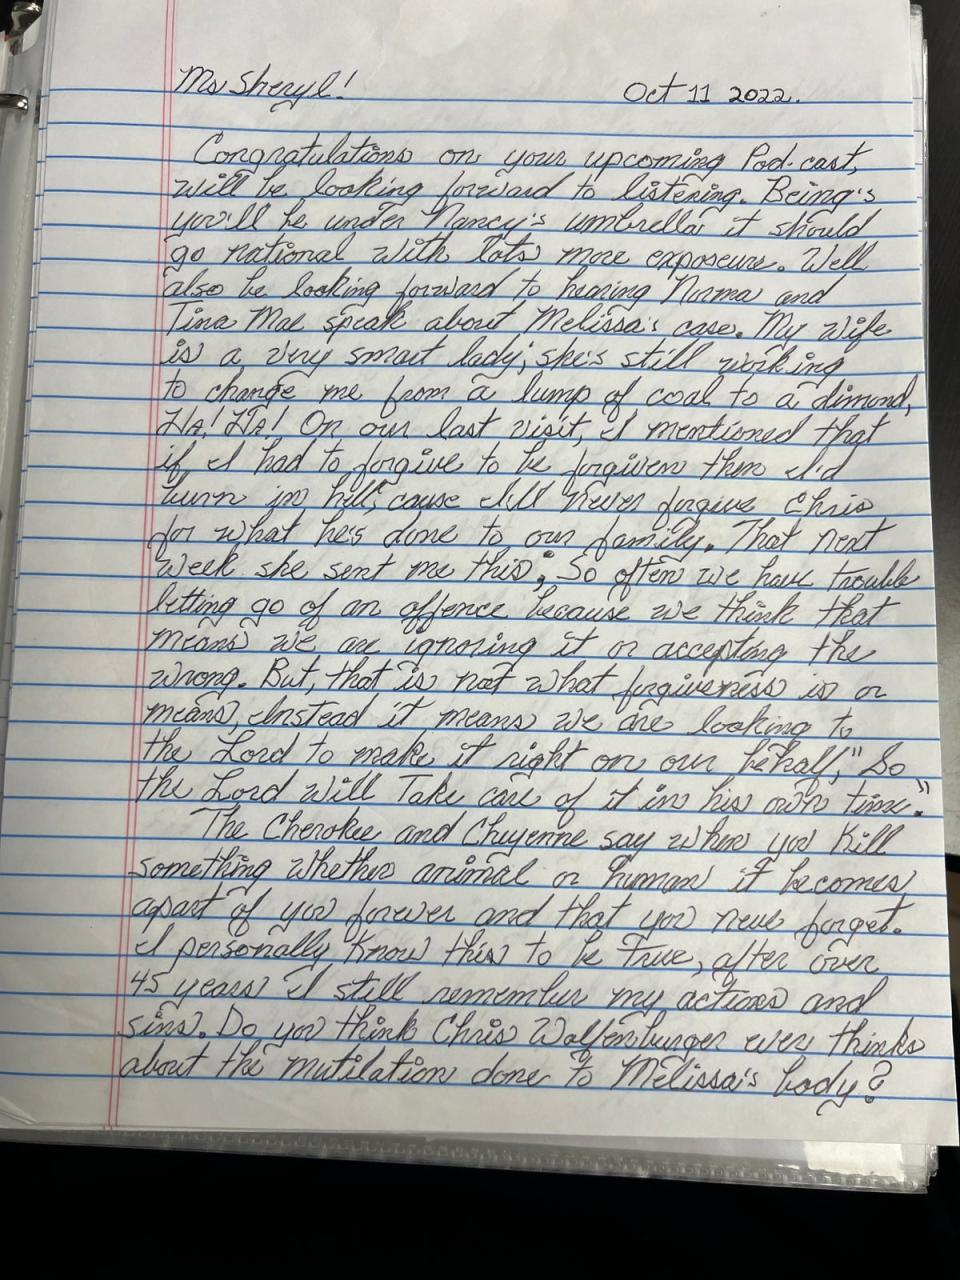 Ms Sheryl! Oct 11 2022.
Congratulations on your upcoming Pod-cast,
will be looking forward to listening. Being's
you'll be under Nancy's umbrella it should
go national with lots more exposeure. Well
also be looking forward to hearing Norma and
Tina Mae speak about Melissa's case. My wife
is a very smart lady; she's still working
to change me from a lump of coal to a dimond,
HA! HA! On our last visit, I mentioned that
if I had to forgive to be forgiven then I'd
burn in hell, cause I'll never forgive Chris
for what he's done to our family. That next
week she sent me this; So often we have trouble
letting go of an offence because we think that
means we are ignoring it or accepting the
wrong. But, that is not what forgiveness is or
means, Instead it means we are looking to
the Lord to make it right on our behalf, "So
the Lord will Take care of it in his own time."
The Cherokee and Cheyenne say when you Kill
something whether animal or human it becomes
apart of you forever and that you never forget.
I personally Know this to be True, after over
45 years I still remember my actions and
sins. Do you think Chris Wolfenburger ever thinks
about the mutilation done to Melissa's body?